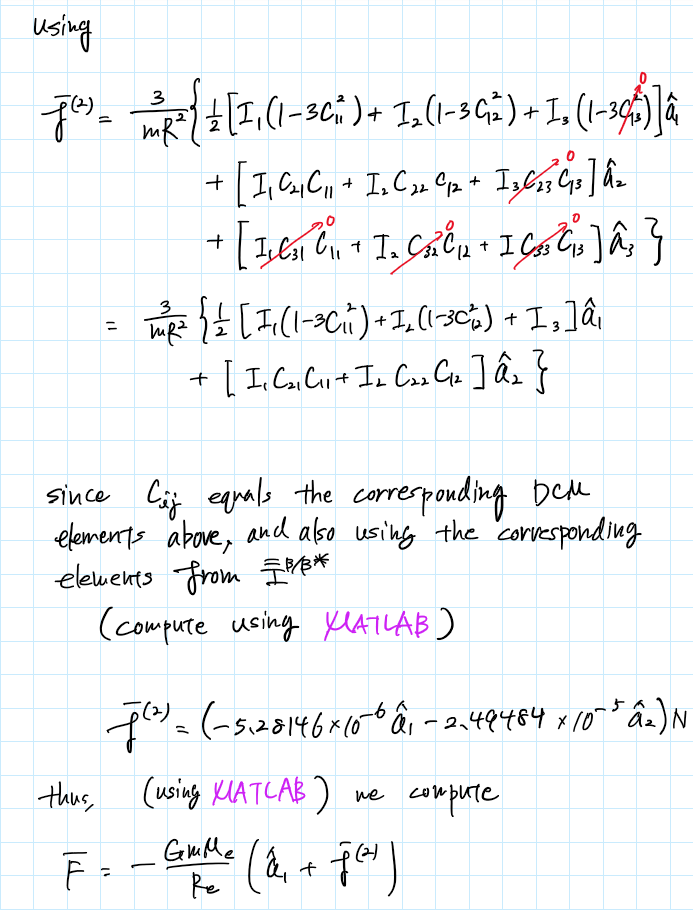 using
f̄⁽²⁾ = 3/(mR²) { 1/2 [ I₁(1-3C₁₁²) + I₂(1-3C₁₂²) + I₃(1-3C₁₃²) ] â₁
+ [ I₁ C₂₁ C₁₁ + I₂ C₂₂ C₁₂ + I₃ C₂₃ C₁₃ ] â₂
+ [ I₁ C₃₁ C₁₁ + I₂ C₃₂ C₁₂ + I C₃₃ C₁₃ ] â₃ }
= 3/(mR²) { 1/2 [ I₁(1-3C₁₁²) + I₂(1-3C₁₂²) + I₃ ] â₁
+ [ I₁ C₂₁ C₁₁ + I₂ C₂₂ C₁₂ ] â₂ }
since Cᵢⱼ equals the corresponding DCM
elements above, and also using the corresponding
elements from I^B/B*
(compute using MATLAB)
f̄⁽²⁾ = (-5.28146 × 10⁻⁶ â₁ - 2.49484 × 10⁻⁵ â₂) N
thus, (using MATLAB) we compute
F̄ = - GmMₑ/Rₑ ( â₁ + f̄⁽²⁾ )